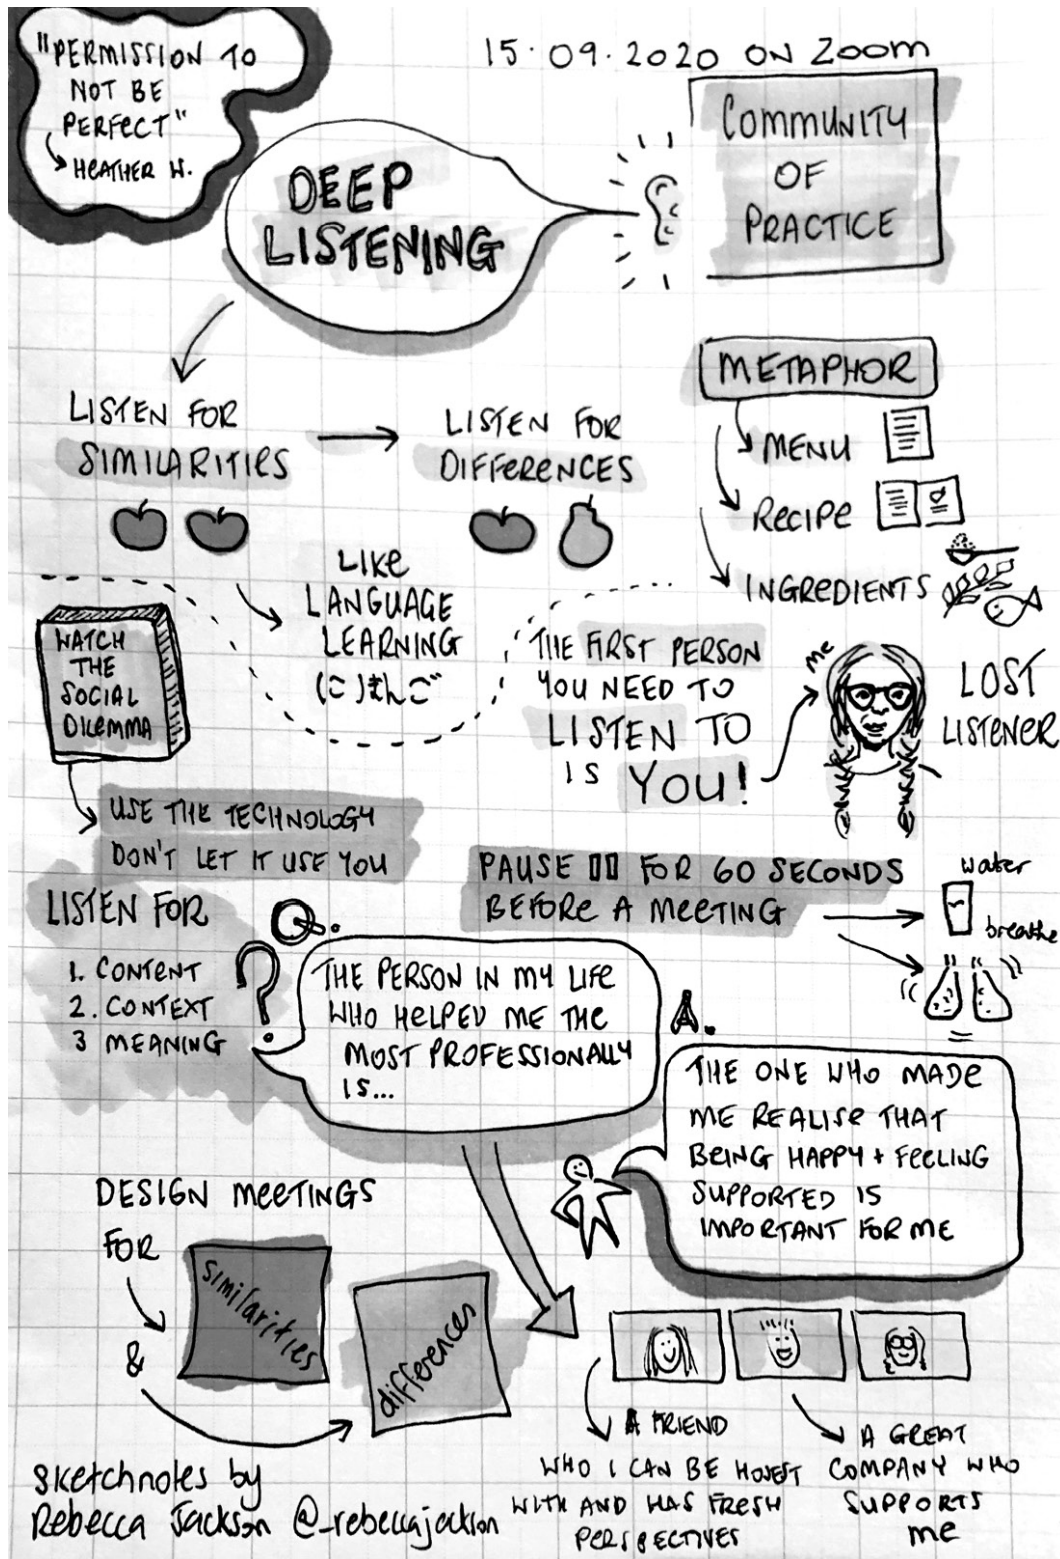 "PERMISSION TO
NOT BE
PERFECT"
HEATHER W.
15.09.2020 ON ZOOM
COMMUNITY
OF
PRACTICE
DEEP
LISTENING
METAPHOR
MENU
RECIPE
INGREDIENTS
LISTEN FOR
SIMILARITIES
LISTEN FOR
DIFFERENCES
LIKE
LANGUAGE
LEARNING
にほんご
WATCH
THE
SOCIAL
DILEMMA
USE THE TECHNOLOGY
DON'T LET IT USE YOU
THE FIRST PERSON
YOU NEED TO
LISTEN TO
IS YOU!
me
LOST
LISTENER
PAUSE FOR 60 SECONDS
BEFORE A MEETING
water
breathe
LISTEN FOR
1. CONTENT
2. CONTEXT
3 MEANING
?
Q.
THE PERSON IN MY LIFE
WHO HELPED ME THE
MOST PROFESSIONALLY
IS...
A.
THE ONE WHO MADE
ME REALISE THAT
BEING HAPPY + FEELING
SUPPORTED IS
IMPORTANT FOR ME
DESIGN MEETINGS
FOR
similarities
&
differences
A FRIEND
WHO I CAN BE HONEST
WITH AND HAS FRESH
PERSPECTIVES
A GREAT
COMPANY WHO
SUPPORTS
me
sketchnotes by
Rebecca Jackson @_rebeccajackson